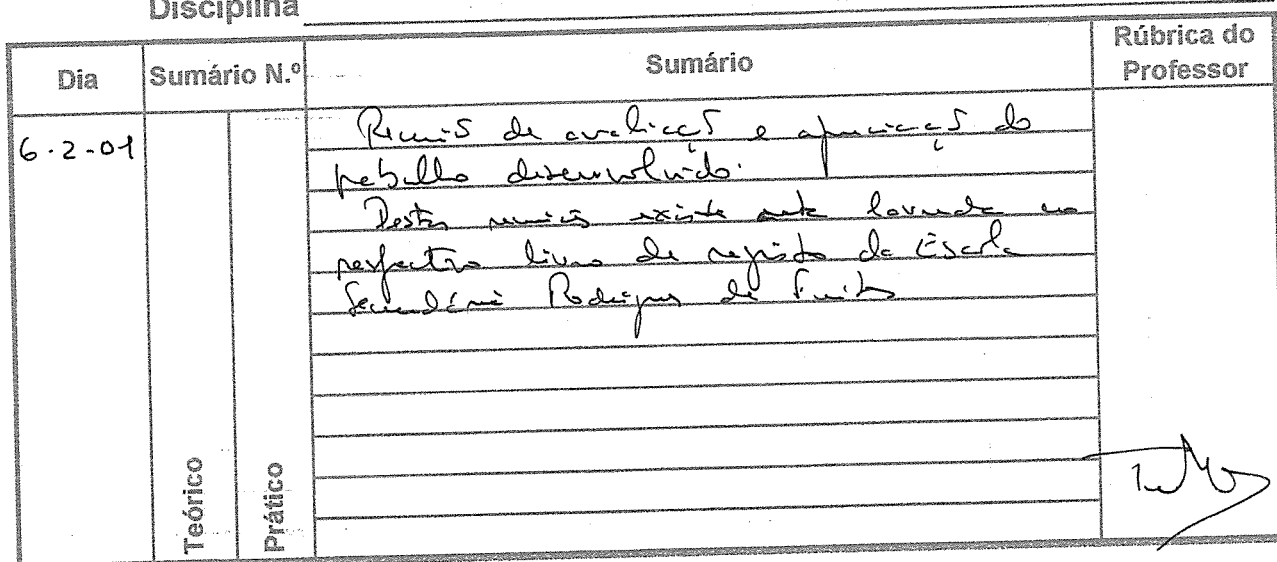 Disciplina
Dia
Sumário N.º
Sumário
Rúbrica do
Professor
6-2-01
Reunião de avaliação e apreciação do
trabalho desenvolvido.
Desta reunião existe acta lavrada no
respectivo livro de registo da Escola
Secundária Rodrigues de Freitas
Teórico
Prático